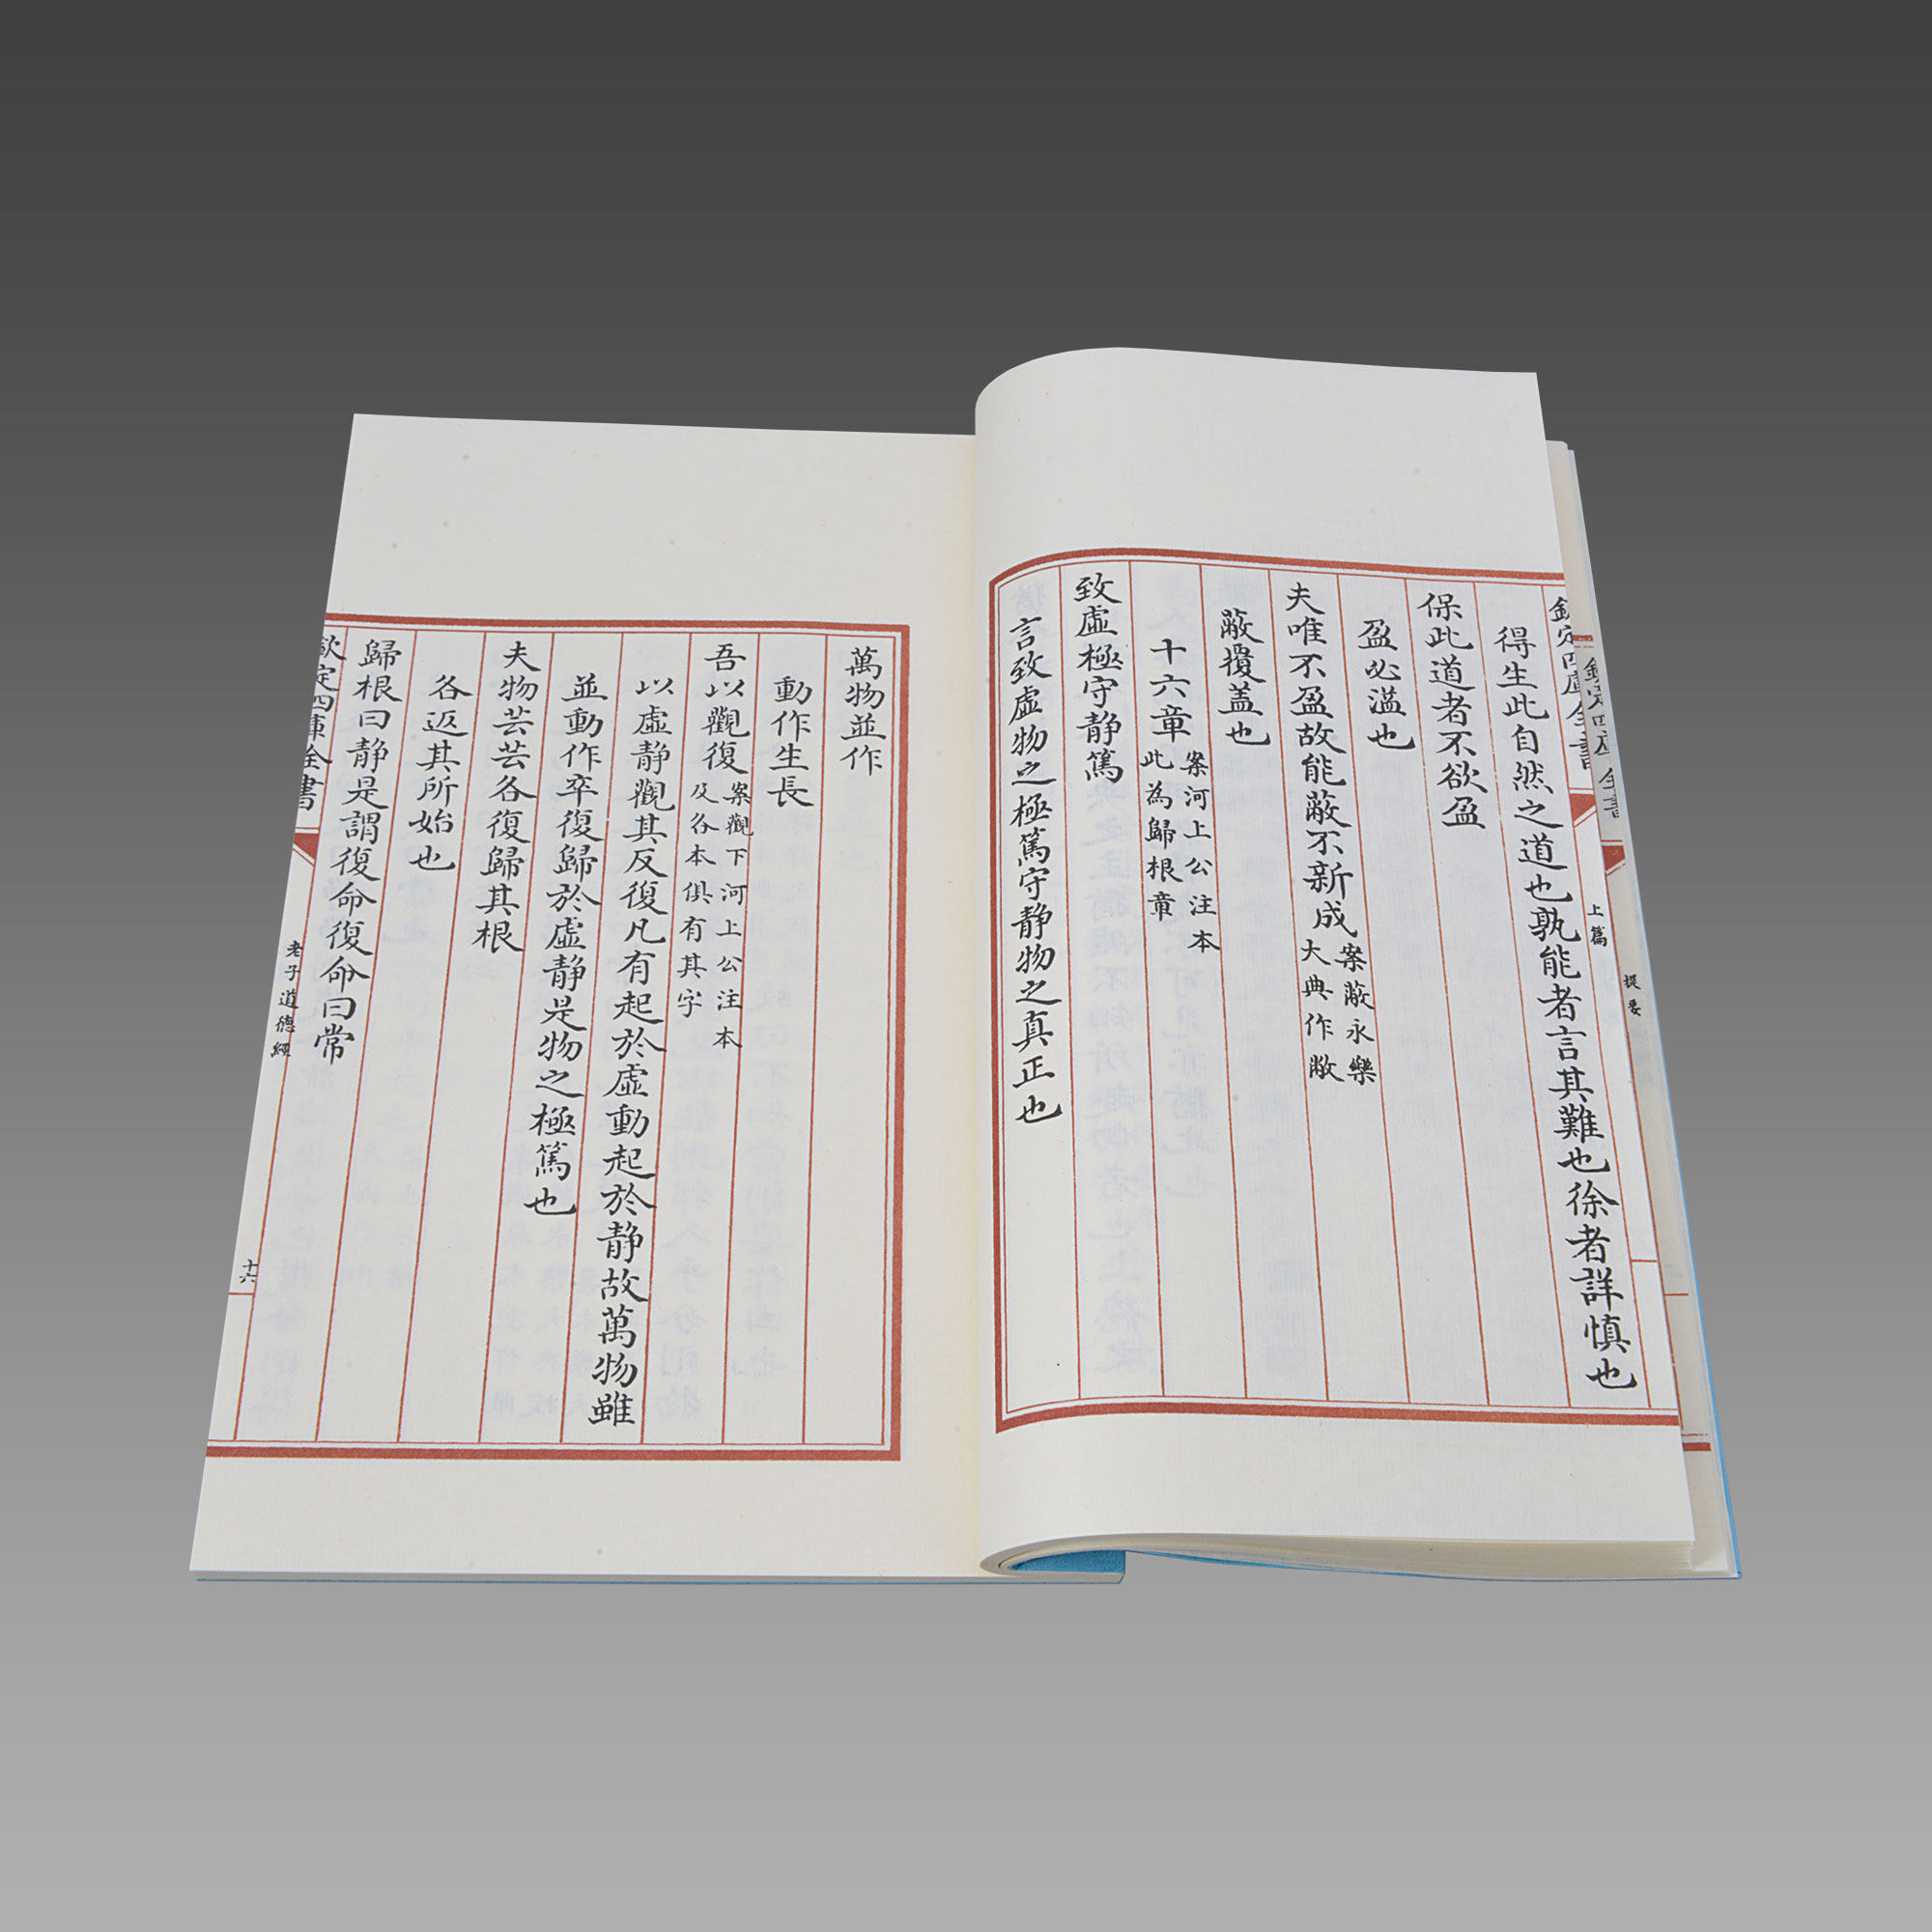 欽定四庫全書
提要
欽定四庫全書
上篇
得生此自然之道也孰能者言其難也徐者詳慎也
保此道者不欲盈
盈必溢也
夫唯不盈故能蔽不新成案蔽永樂
大典作敝
蔽覆盖也
十六章案河上公注本
此為歸根章
致虛極守静篤
言致虛物之極篤守静物之真正也
萬物並作
動作生長
吾以觀復案觀下河上公注本
及各本俱有其字
以虛静觀其反復凡有起於虛動起於静故萬物雖
並動作卒復歸於虛静是物之極篤也
夫物芸芸各復歸其根
各返其所始也
歸根曰静是謂復命復命曰常
欽定四庫全書
老子道德經
十六